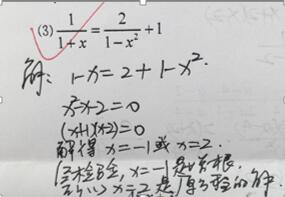 (3) 1/(1+x) = 2/(1-x²) + 1
解: 1-x = 2+1-x².
x²-x-2=0
(x+1)(x-2)=0
解得 x=-1或x=2.
经检验, x=-1是增根.
所以x=2是原方程的解.